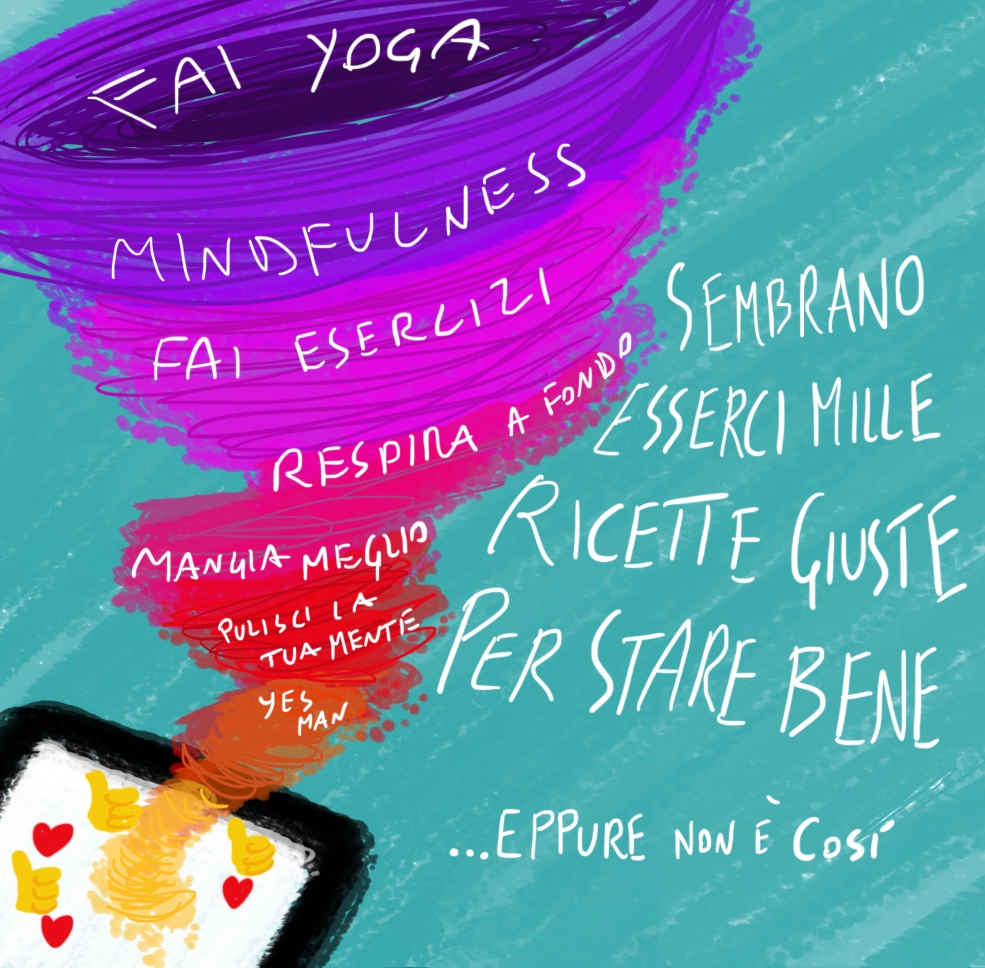 FAI YOGA
MINDFULNESS
FAI ESERCIZI
RESPIRA A FONDO
MANGIA MEGLIO
PULISCI LA
TUA MENTE
YES
MAN
SEMBRANO
ESSERCI MILLE
RICETTE GIUSTE
PER STARE BENE
...EPPURE NON È COSÌ